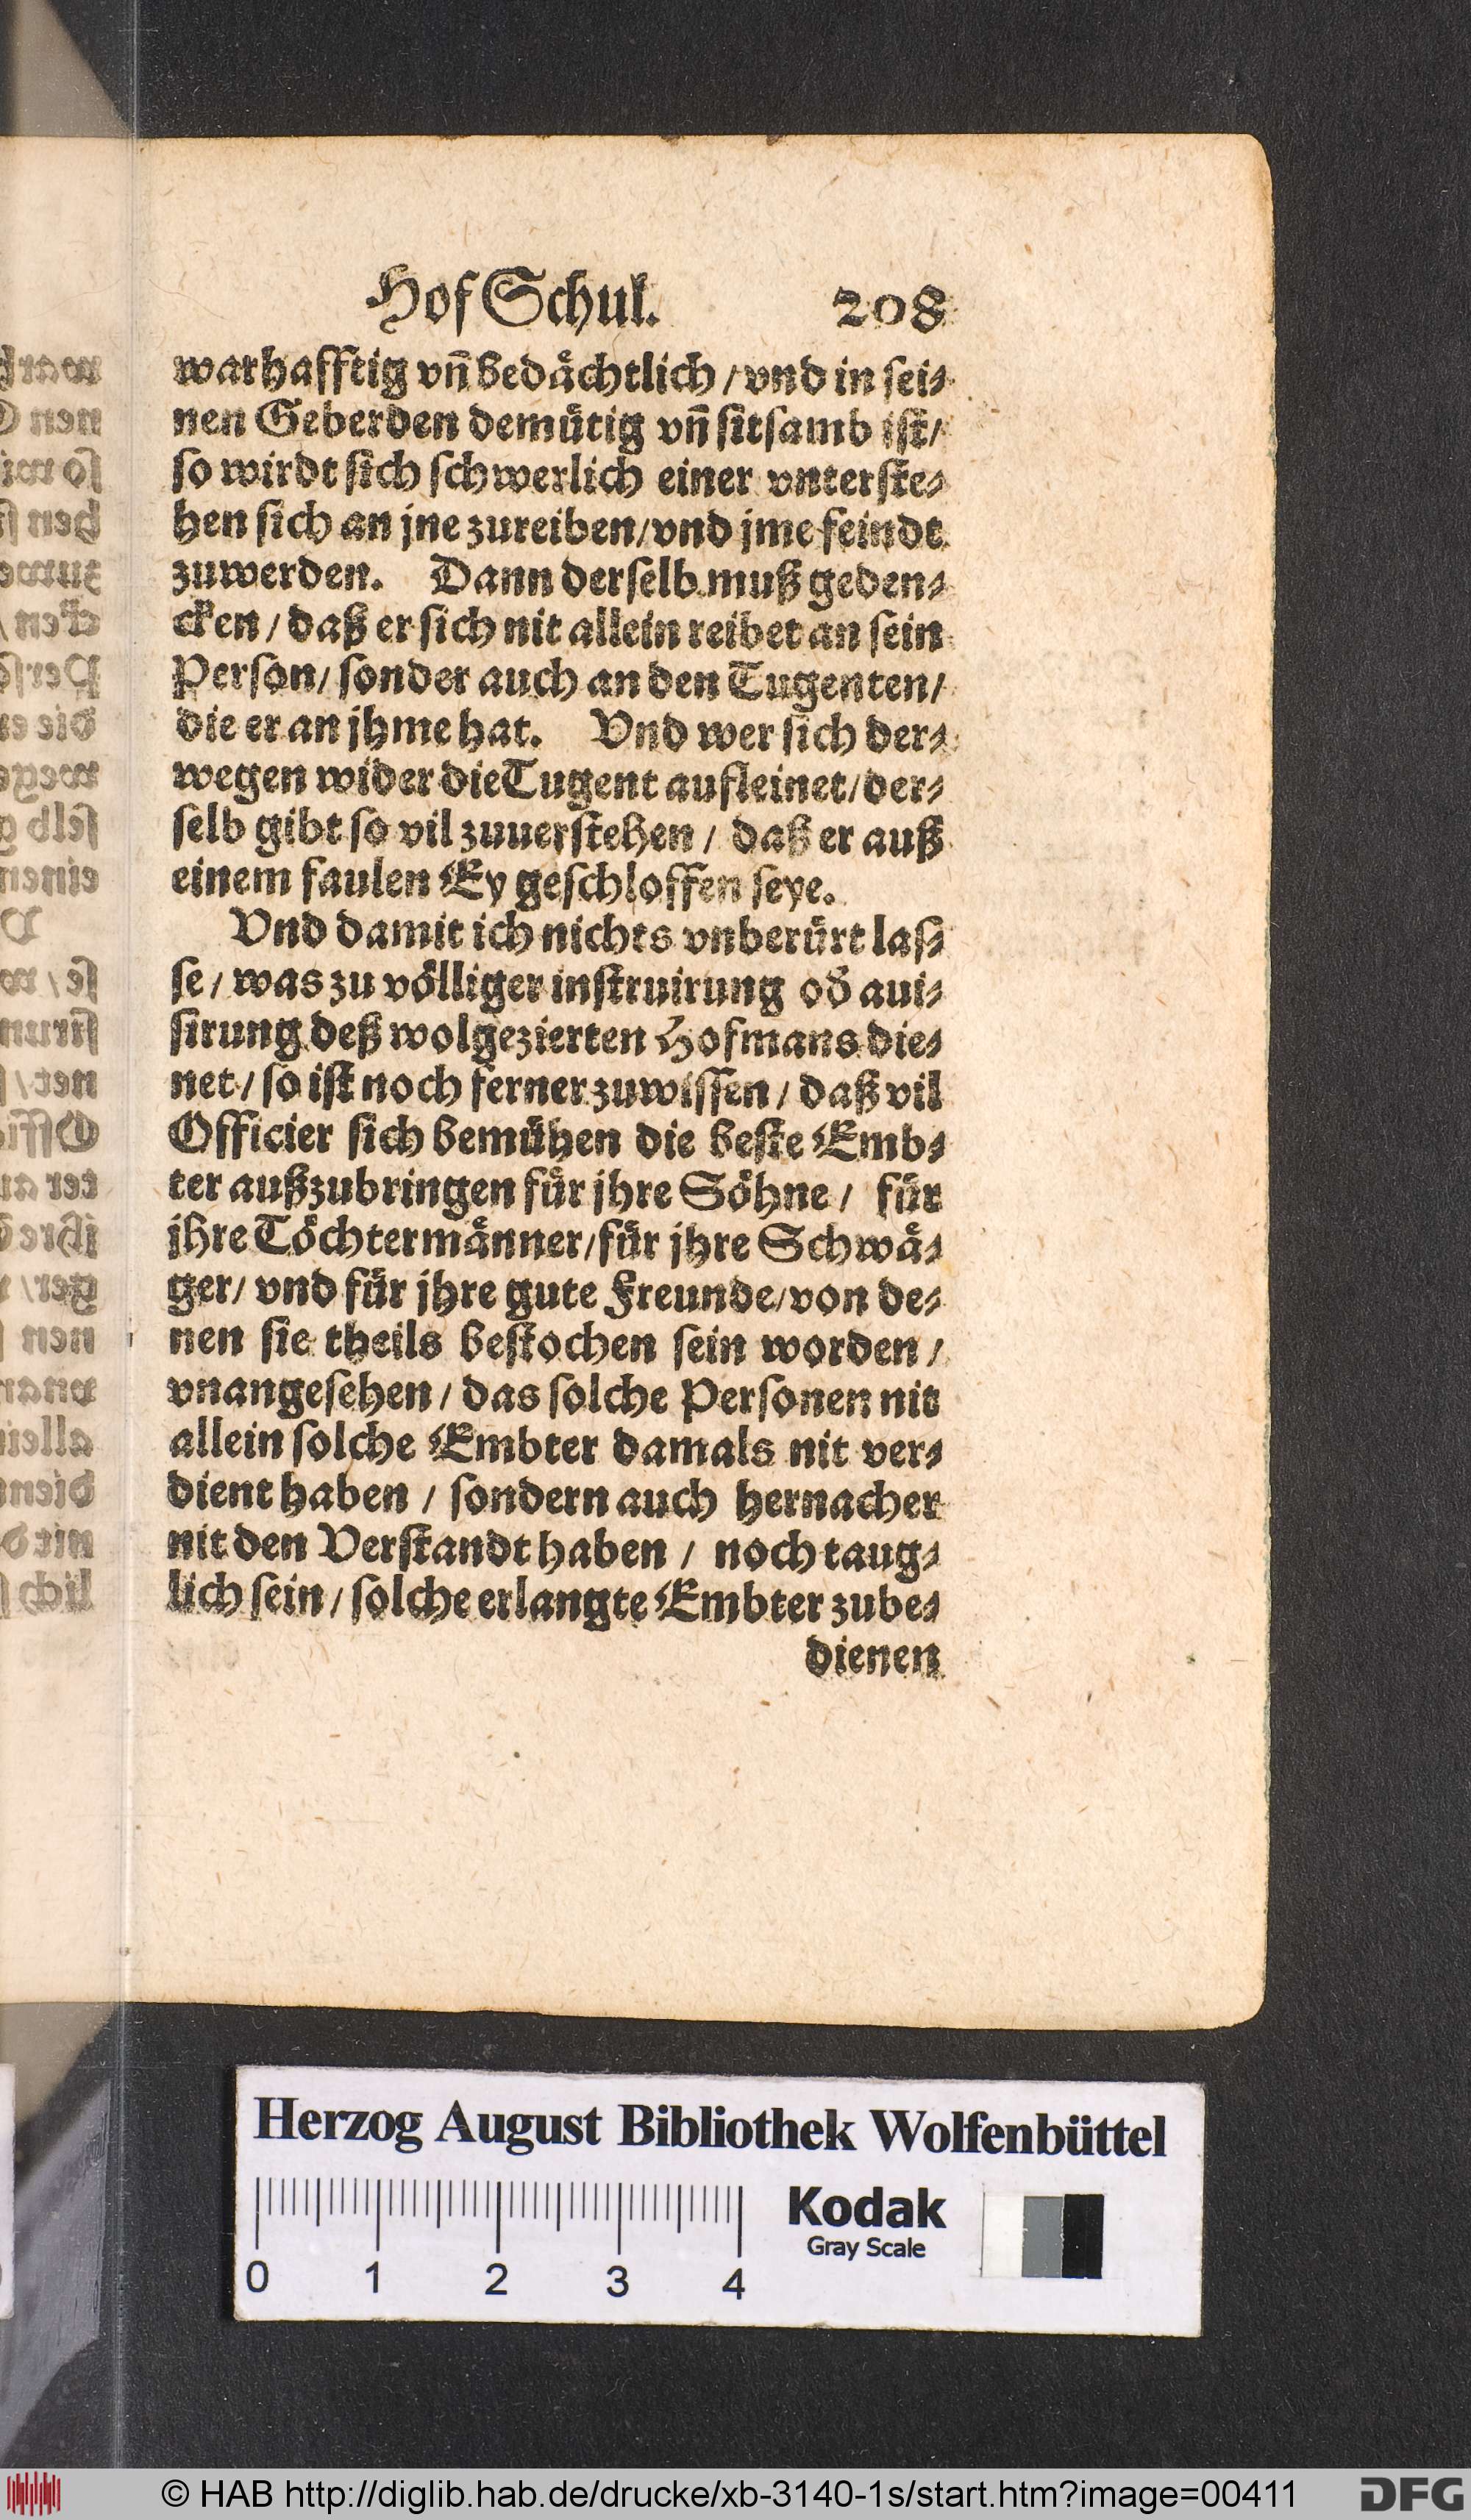 Hof Schul. 208
warhafftig vñ bedåchtlich / vnd in sei⸗
nen Geberden demůtig vñ sitsamb ist /
so wirdt sich schwerlich einer vnterste⸗
hen sich an jne zureiben / vnd jme feindt
zuwerden. Dann derselb muß geden⸗
cken / daß er sich nit allein reibet an sein
Person / sonder auch an den Tugenten /
die er an jhme hat. Vnd wer sich der⸗
wegen wider die Tugent aufleinet / der⸗
selb gibt so vil zuuerstehen / daß er auß
einem faulen Ey geschloffen seye.
Vnd damit ich nichts vnberürt las⸗
se / was zu völliger instruirung oď aui⸗
sirung deß wolgezierten Hofmans die⸗
net / so ist noch ferner zuwissen / daß vil
Officier sich bemühen die beste Emb⸗
ter außzubringen für jhre Söhne / für
jhre Töchtermänner / für jhre Schwä⸗
ger / vnd für jhre gute Freunde / von de⸗
nen sie theils bestochen sein worden /
vnangesehen / das solche Personen nit
allein solche Embter damals nit ver⸗
dient haben / sondern auch hernacher
nit den Verstandt haben / noch taug⸗
lich sein / solche erlangte Embter zube⸗
dienen
Herzog August Bibliothek Wolfenbüttel
0 1 2 3 4
Kodak
Gray Scale
© HAB http://diglib.hab.de/drucke/xb-3140-1s/start.htm?image=00411
DFG